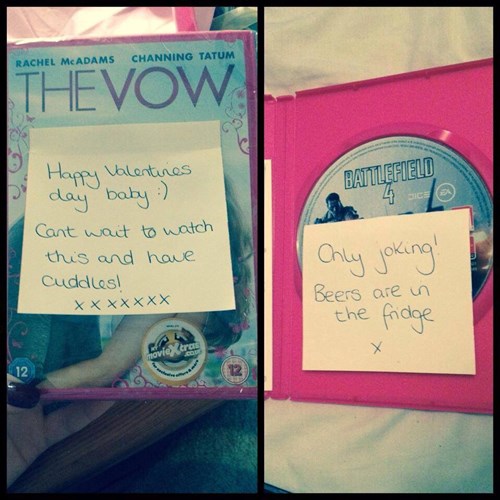 RACHEL McADAMS CHANNING TATUM
THE VOW
Happy Valentines
day baby :)
Cant wait to watch
this and have
cuddles!
x x x x x x x
movieXtras
12
12
BATTLEFIELD
4
DICE EA
Only joking!
Beers are in
the fridge
x